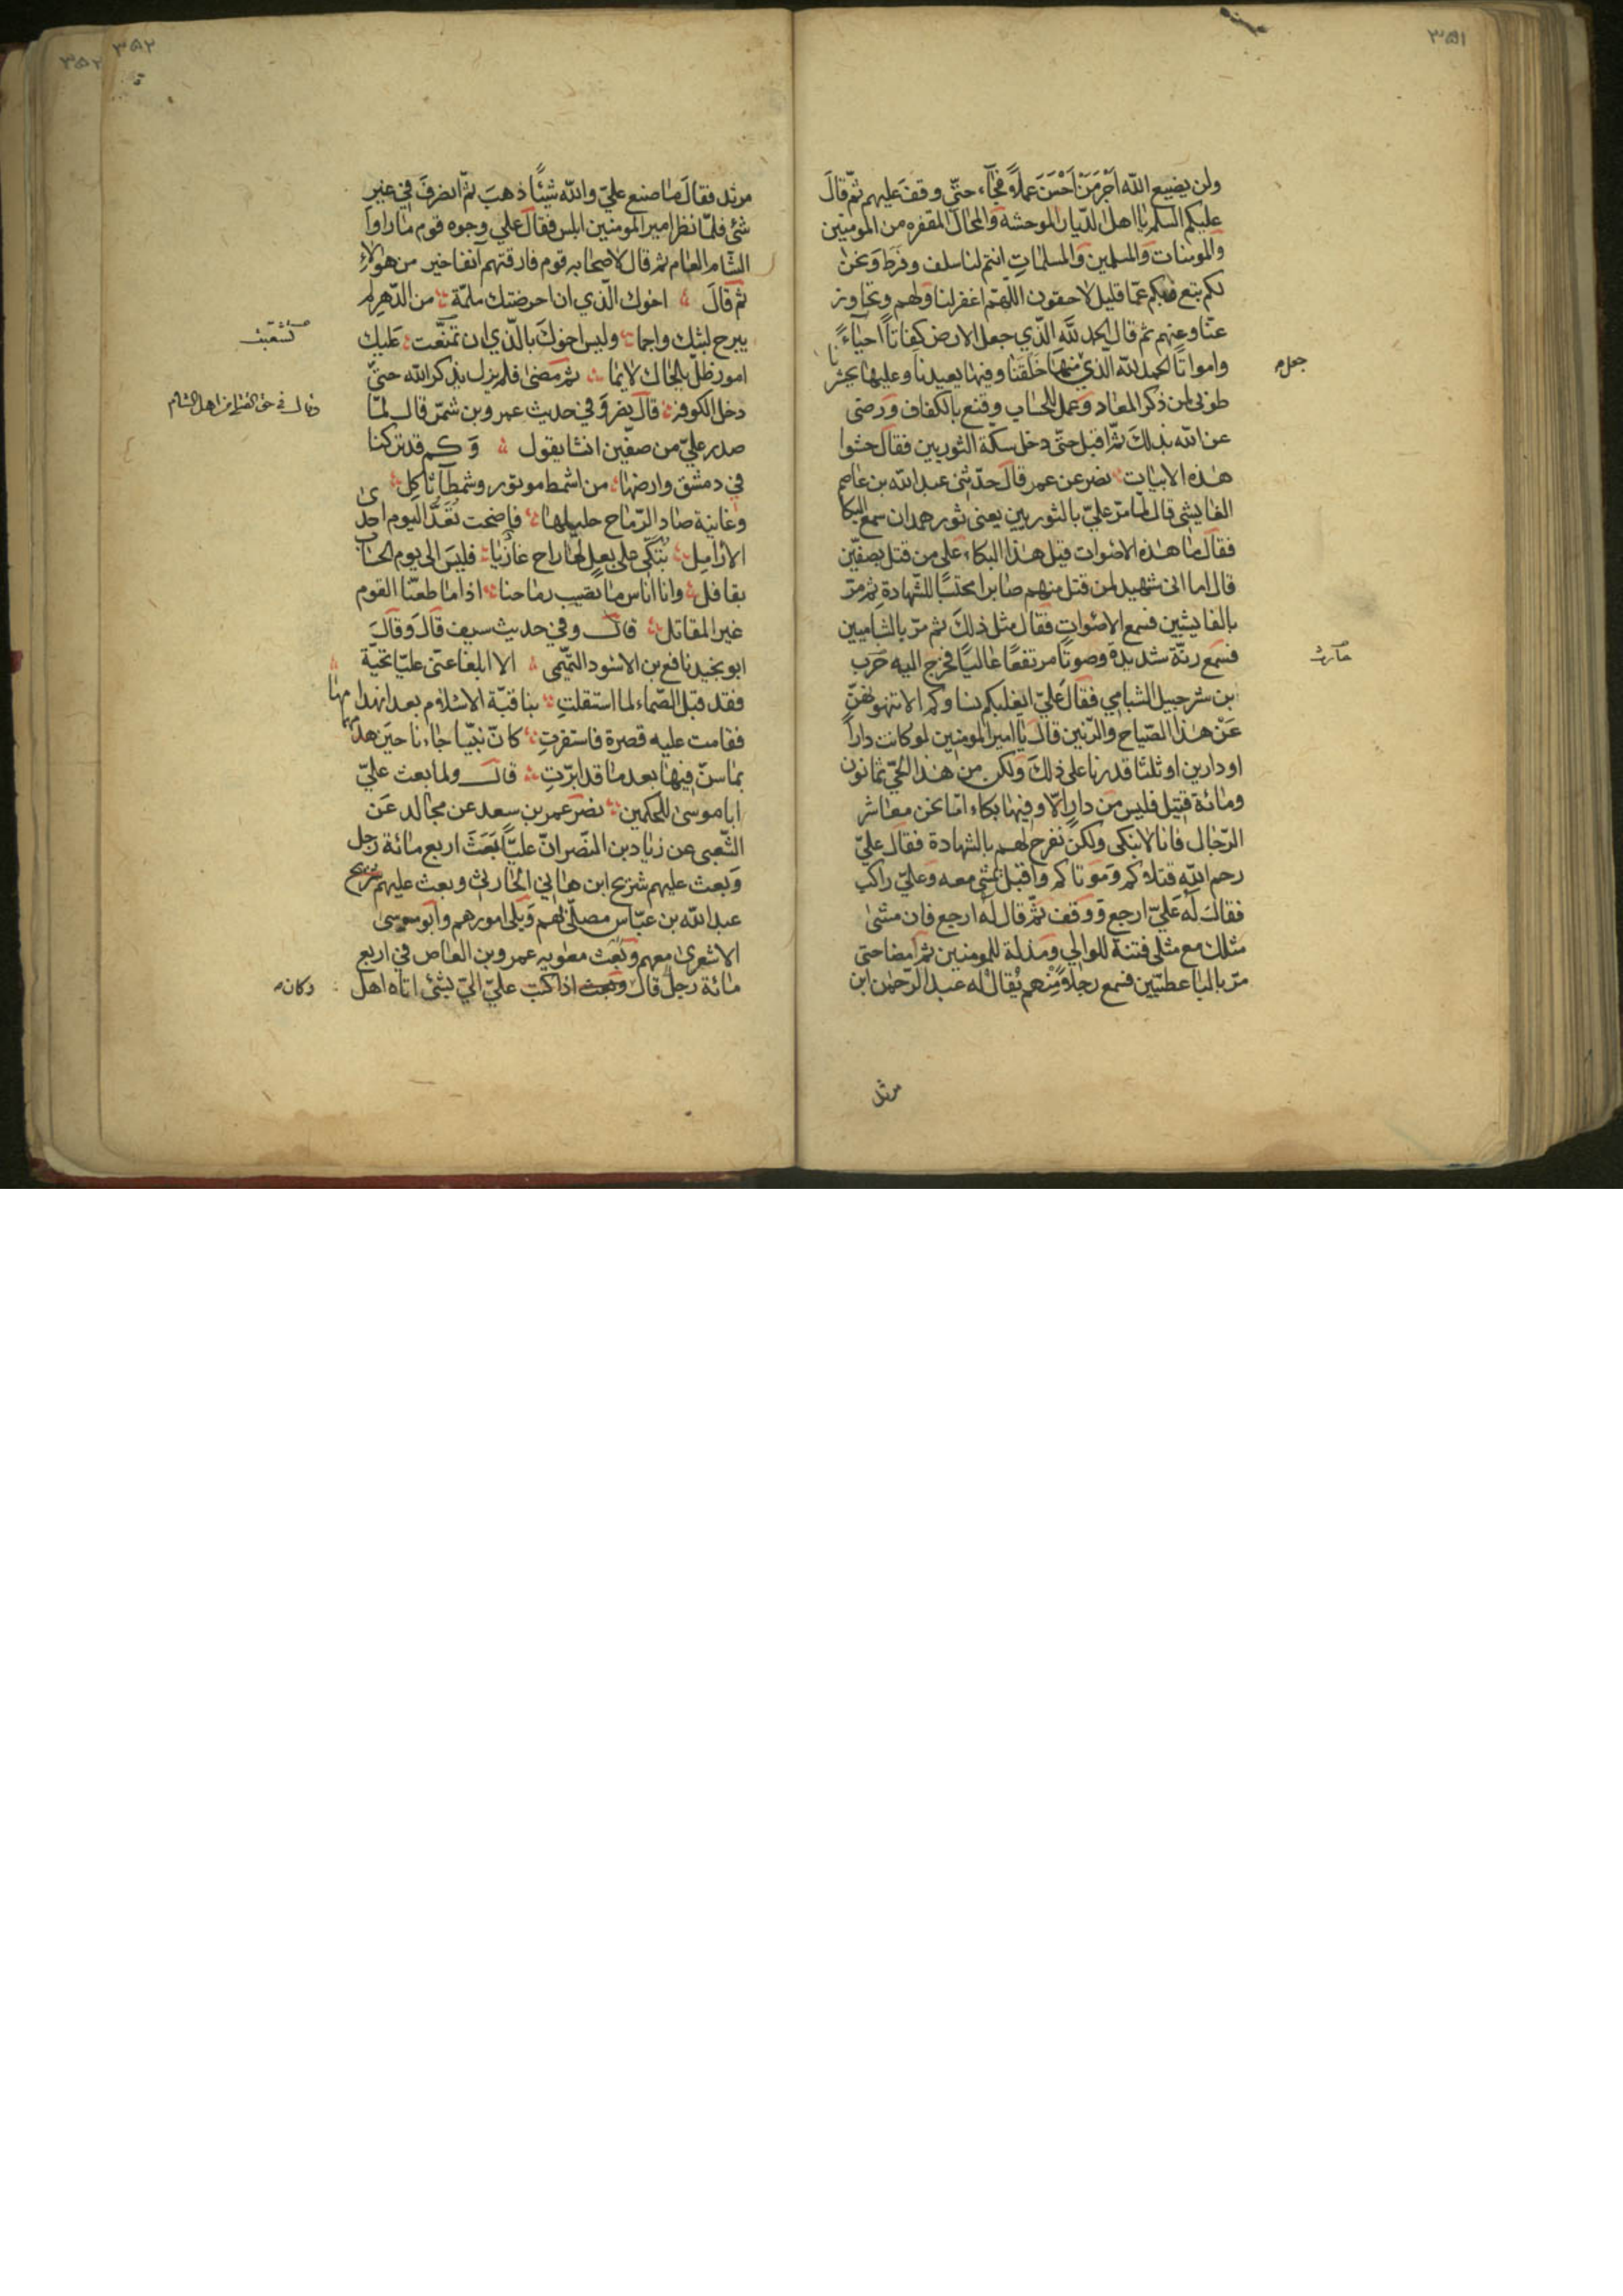 ٣٥١
ولن يضيع الله اَجْرَ مَنْ اَحْسَنَ عَمَلاً فجآء حتّى وقف عليهم ثمّ قالَ
عليكم السلم يا اهل الدّيار الموحشة والمحال المقفره من المومنين
والمومنات والمسلمين والمسلماتِ انتم لنا سلف وفرط وَنحن
لكم تبع وبكم عمّا قليل لاحقون اللهّم اغفر لنا ولهم وتجاوز
عنّا وعنهم ثم قال الحمد لله الّذي جعل الارض كفاتاً احيآءً
وامواتاً الحمد لله الذي منها خلقنا وفيها يعيدنا وعليها يحشرنا
جعل
طوبى لمن ذكر المعاد وَعمل للحساب وقنع بالكفاف وَرضى
عن الله بذلكَ ثمّ اقبل حتّى دخل سكّة الثوريين فقالَ خشوا
هذه الابيات نصر عن عمر قالَ حدّثنى عبد الله بن عاصم
الفايشى قال لمّا مرّ عليّ بالثوريين يعنى ثور همدان سمع البكا
فقالَ ما هذه الاصوات قيل هذا البكاء على من قتل بصفّين
قال اما انى شهيد لمن قتل منهم صابرا محتسبًا للشّهادةِ ثم مرّ
بالفايشين فسمع الاصوات فقال مثل ذلكَ ثم مرّ بالشباميين
فسمع رنّة شديدة وصوتًا مرتفعًا عاليًا فخرج اليه حَرَب
بن شرحبيل الشبامي فقالَ عليّ ايغلبكم نساوكم الا تنهونهنّ
عَنْ هذا الصّياح والرّنين قالَ يا امير المومنين لو كانت داراً
او دارين او ثلثا قدرنا على ذلكَ ولكن من هذا الحيّ ثمانون
ومائة قتيل فليس من دار الّا وفيها بكاء امّا نحن معاشر
الرّجال فانا لا نبكى ولكن نفرح لهم بالشهادة فقالَ عليّ
رحم الله قتلاكم وَموتاكم واقبل يمشي معه وَعليّ راكب
فقالَ لَه عَليّ ارجع وَوقف ثمّ قال لَه ارجع فان مشى
مثلك مع مثلى فتنة للوالي ومذلة للمومنين ثم مضا حتى
مرّ بالناعطيّين فسمع رجلاً مِنْهم يُقالُ له عبد الرّحمٰن ابن
مرثد
٣٥٢
٣٥٢
مرثد فقالَ ما صنع عليّ والله شيئًا ذهبَ ثمّ انصرفَ في غير
شئ فلمّا نظر امير المومنين ابلس فقالَ علي وجوه قوم ما راوا
الشّام العام ثم قالَ لاصحابه قوم فارقتهم آنفا خير من هولاءِ
ثم قالَ اخوك الّذي ان احرضتك ملمّة من الدّهر لم
يبرح لبثك واجما وليس اخوكَ بالّذي ان تمنّعت عَليك
امور ظلّ يلحاك لائما ثم مَضىٰ فلم يزل يذكر الله حتىّ
دخل الكوفة قالَ نصر وَفي حديث عمر وبن شمّر قالَ لمّا
وقال في حق القتلى من اهل الشام
صدر عليّ من صفّين انشا يقول وَكم قد تركنا
في دمشق وارضها من اشمط موتور وشمطآء ثاكِل
وغانية صاد الرّماح حليلها فاضحت تُعَدُّ اليوم احدى
الارامِل تُبَكّى على بعلٍ لها راح غازيا فليسَ الى يوم الحساب
بقافل وانا اناس ما تصيب رماحنا اذا ما طعنّا القوم
غير المقاتل قالَ وفي حديث سيف قالَ وَقالَ
ابو نجيد نافع بن الاسود التّميمى الا ابلغا عنّى عليّا تحيّة
فقد قبل الصّماء لما استقلتِ بنا قبّة الاسلام بعد انهدامها
فقامت عليه قصرة فاستقرتِ كانّ نبيّا جاءنا حين هدمها
بما سنّ فيها بعد ما قد ابرّتِ قالَ ولما بعث عليّ
ابا موسىٰ للحكمين نصر عمر بن سعد عن مجالد عَن
الشّعبى عن زياد بن النّضر انّ عليّاً بَعَثَ اربع مائة رجل
وَبعث عليهم شريح ابن هانى الحارثى وبعث عليهم شريح
عبد الله بن عبّاس مصلّى بهم وَيلى امورهم وابو موسىٰ
الاشعرى معهم وَبَعَث معٰويه عمرو بن العاص في اربع
مائة رجل قالَ وبعث اذا كتب عليّ اليّ بشئ اتاه اهل
وكان